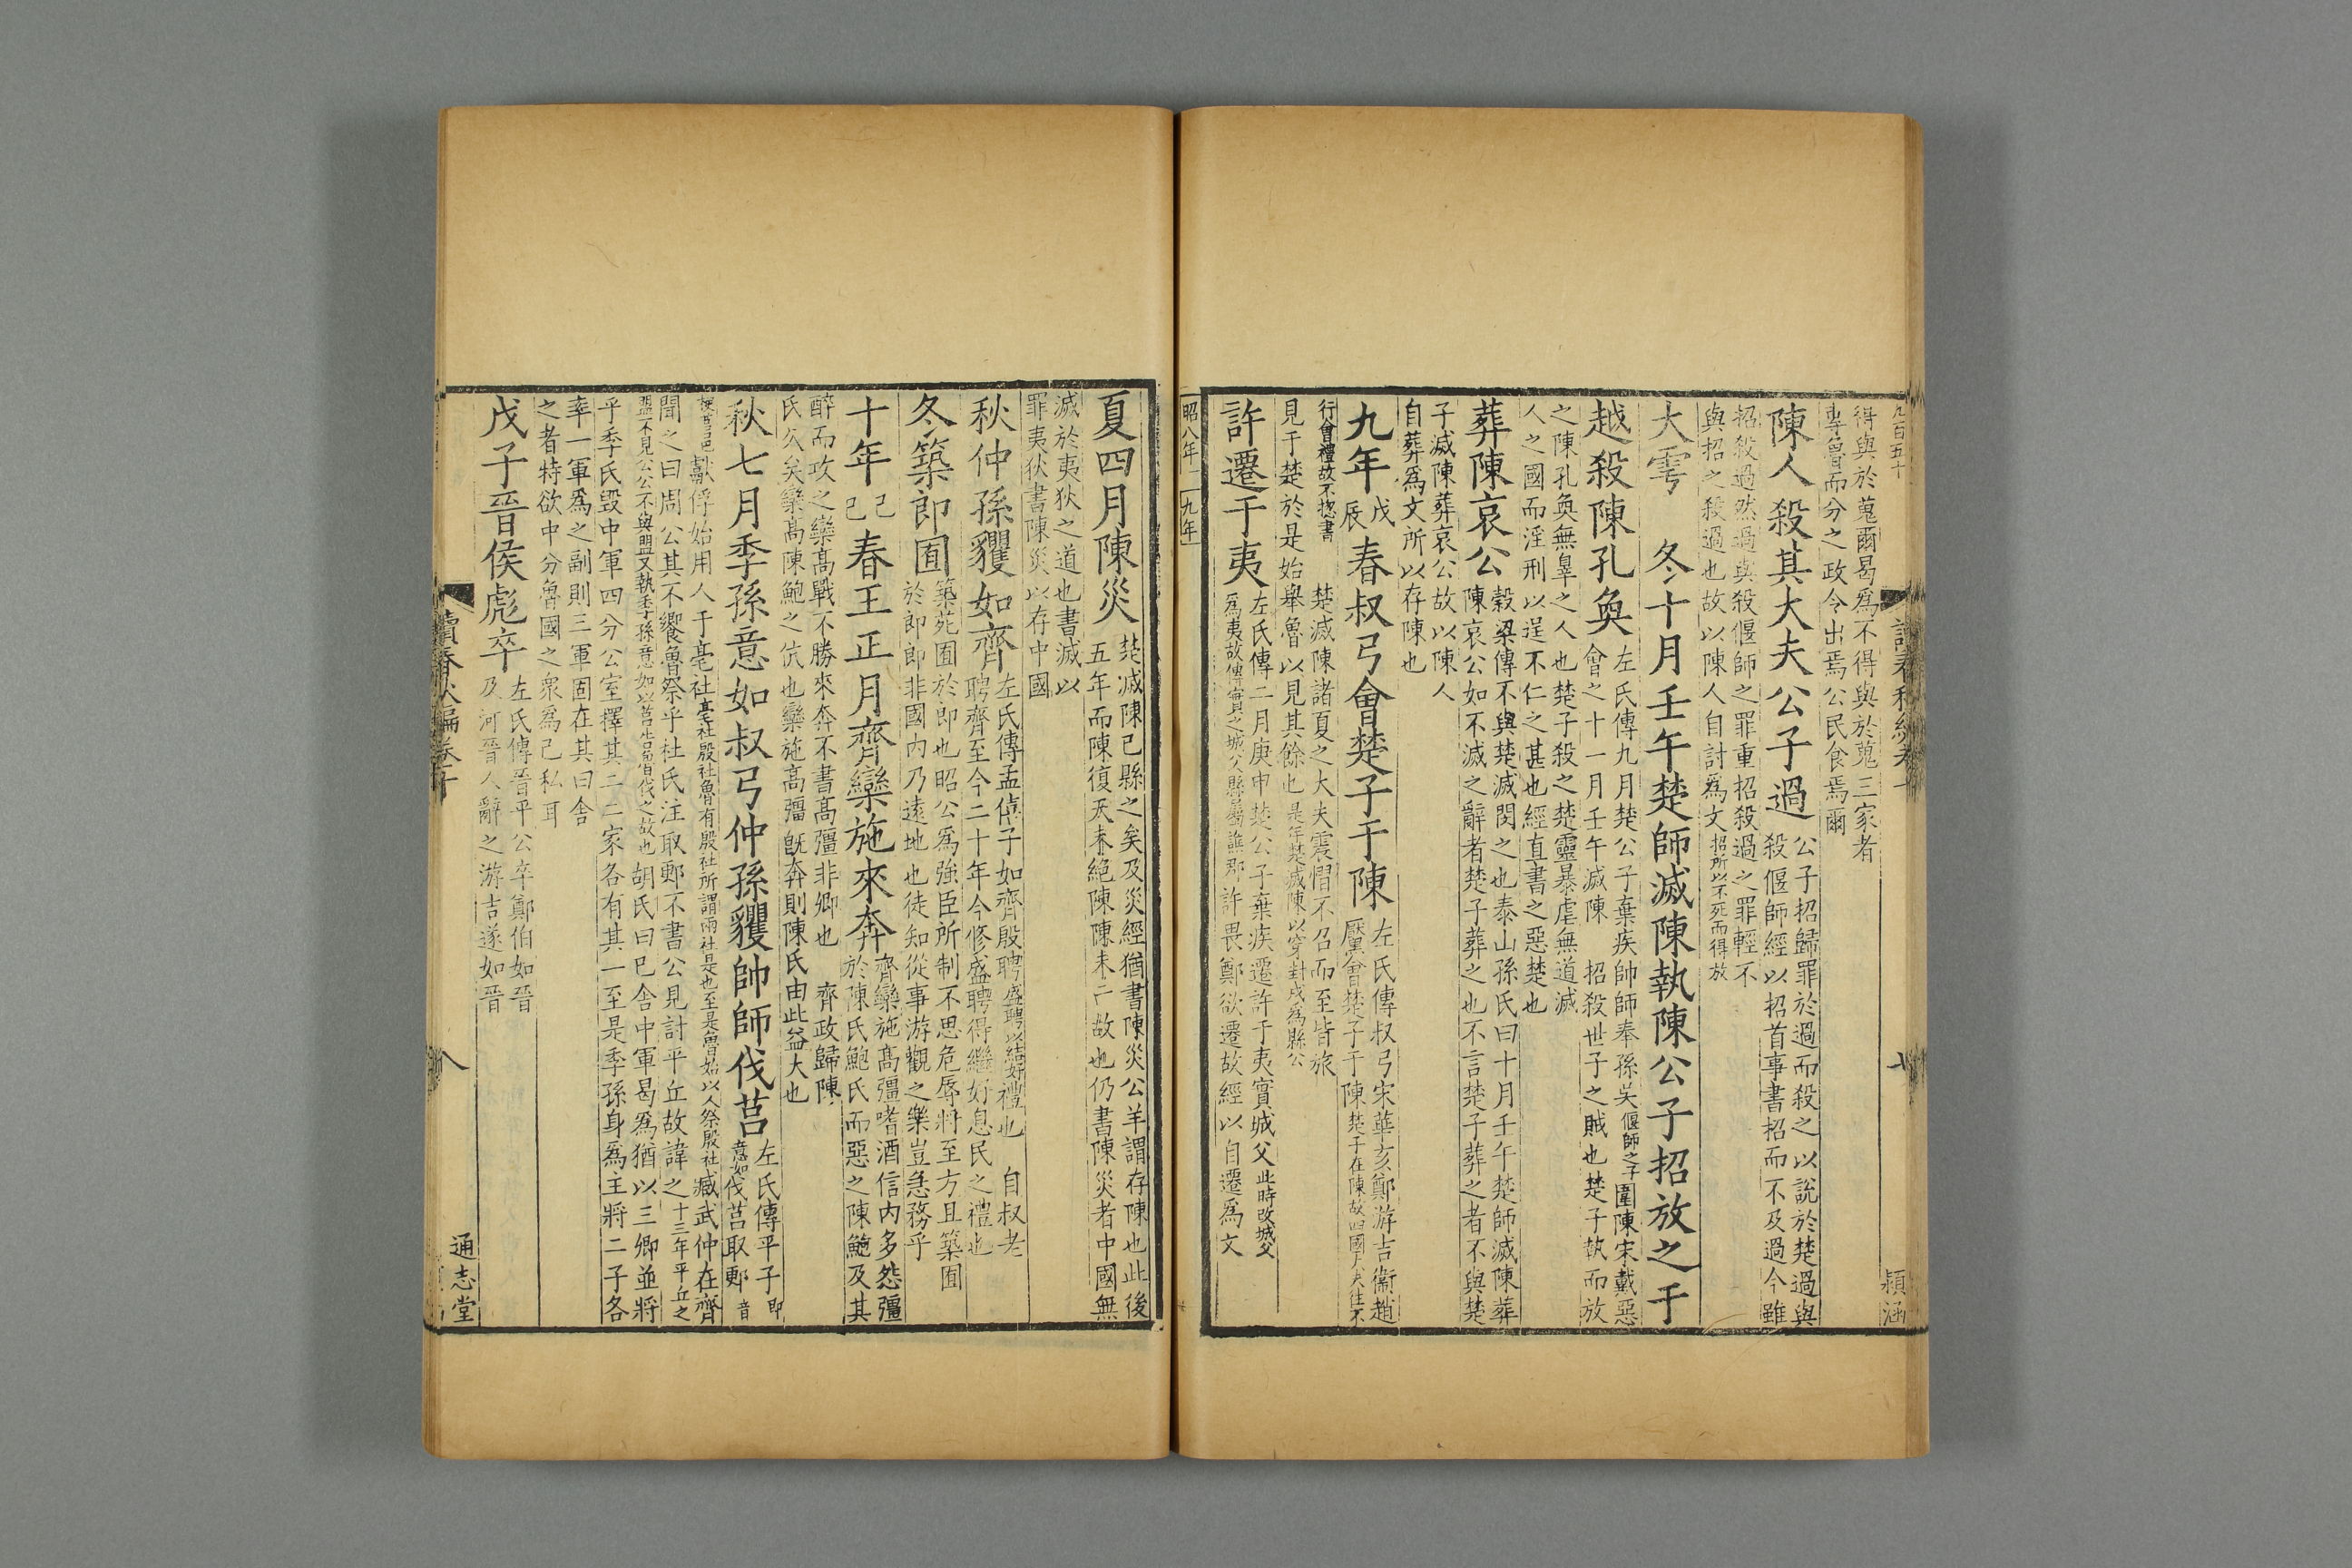 得與於蒐爾曷爲不得與於蒐三家者
專魯而分之政令出焉公民食焉爾
陳人殺其大夫公子過
公子招歸罪於過而殺之以說於楚過與
殺偃師經以招首事書招而不及過今雖
招殺過然過與殺偃師之罪重招殺過之罪輕不
與招之殺過也故以陳人自討爲文招所以不死而得放
大雩 冬十月壬午楚師滅陳執陳公子招放之于
越殺陳孔奐
左氏傳九月楚公子棄疾帥師奉孫吴偃師之子圍陳宋戴惡
會之十一月壬午滅陳 招殺世子之賊也楚子執而放
之陳孔奐無辠之人也楚子殺之楚靈暴虐無道滅
人之國而淫刑以逞不仁之甚也經直書之惡楚也
葬陳哀公
穀梁傳不與楚滅閔之也泰山孫氏曰十月壬午楚師滅陳葬
陳哀公如不滅之辭者楚子葬之也不言楚子葬之者不與楚
子滅陳葬哀公故以陳人
自葬爲文所以存陳也
九年戊辰春叔弓會楚子于陳
左氏傳叔弓宋華亥鄭游吉衞趙
黶會楚子于陳楚子在陳故四國大夫往不
行會禮故不揔書 楚滅陳諸夏之大夫震慴不召而至皆旅
見于楚於是始舉魯以見其餘也是年楚滅陳以穿封戌爲縣公
許遷于夷
左氏傳二月庚申楚公子棄疾遷許于夷實城父此時改城父
爲夷故傳實之城父縣屬譙郡許畏鄭欲遷故經以自遷爲文
昭八年 九年
穎涵
夏四月陳災
楚滅陳已縣之矣及災經猶書陳災公羊謂存陳也此後
五年而陳復天未絕陳陳未亡故也仍書陳災者中國無
滅於夷狄之道也書滅以
罪夷狄書陳災以存中國
秋仲孫貜如齊
左氏傳孟僖子如齊殷聘盛聘以結好禮也 自叔老
聘齊至今二十年今修盛聘得繼好息民之禮也
冬築郎囿
築苑囿於郎也昭公爲強臣所制不思危辱將至方且築囿
於郎郎非國内乃遠地也徒知從事游觀之樂豈急務乎
十年己巳春王正月齊欒施來奔
齊欒施高彊嗜酒信内多怨彊
於陳氏鮑氏而惡之陳鮑及其
醉而攻之欒高戰不勝來奔不書高彊非卿也 齊政歸陳
氏久矣欒高陳鮑之伉也欒施高彊旣奔則陳氏由此益大也
秋七月季孫意如叔弓仲孫貜帥師伐莒
左氏傳平子即
意如伐莒取郠音
梗莒邑獻俘始用人于亳社亳社殷社魯有殷社所謂兩社是也至是魯始以人祭殷社臧武仲在齊
聞之曰周公其不饗魯祭乎杜氏注取郠不書公見討平丘故諱之十三年平丘之
盟不見公公不與盟又執季孫意如以莒愬伐之故也胡氏曰已舍中軍曷爲猶以三卿並將
乎季氏毀中軍四分公室擇其二二家各有其一至是季孫身爲主將二子各
率一軍爲之副則三軍固在其曰舍
之者特欲中分魯國之衆爲己私耳
戊子晉侯彪卒
左氏傳晉平公卒鄭伯如晉
及河晉人辭之游吉遂如晉
讀春秋編卷十
八
通志堂